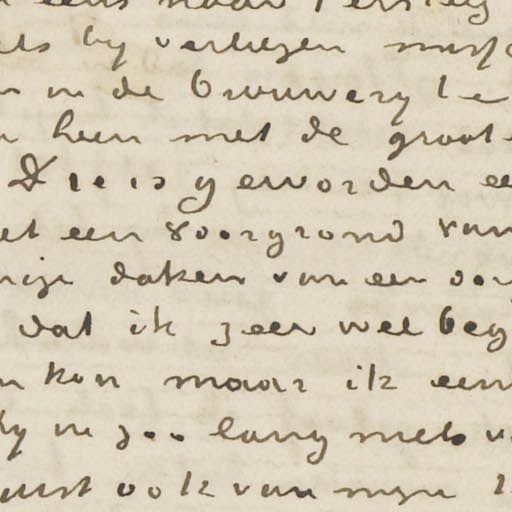 eens naar
by verliezen
in de brouwery te
heen met de groot
Die is geworden ee
et een voorgrond van
daken van een
dat ik zeer wel beg
kon maar ik een
zoo lang niets
ook van myn